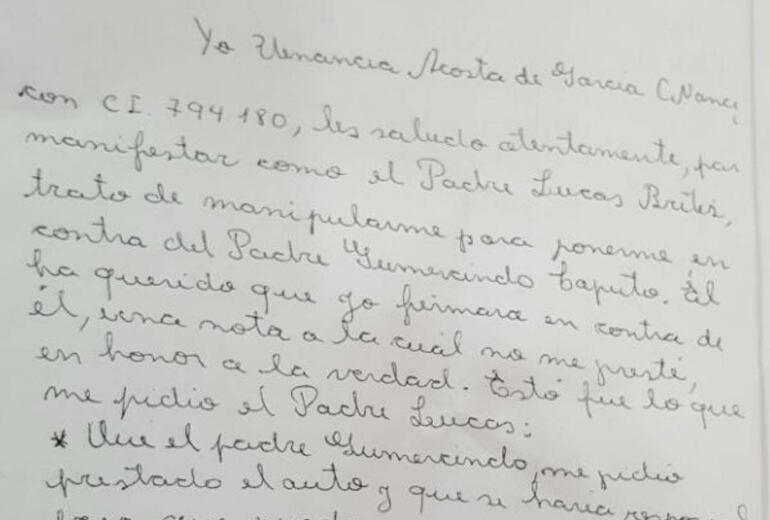 Yo Venancia Acosta de Garcia (Nanci
con C I. 794 180, les saludo atentamente, par
manifestar como el Padre Lucas Britez,
trato de manipularme para ponerme en
contra del Padre Gumercindo Caputo. Él
ha querido que yo firmara en contra de
él, una nota a la cuál no me presté,
en honor a la verdad. Esto fue lo que
me pidio el Padre Lucas:
* Que el padre Gumercindo, me pidio
prestado el auto y que se haria